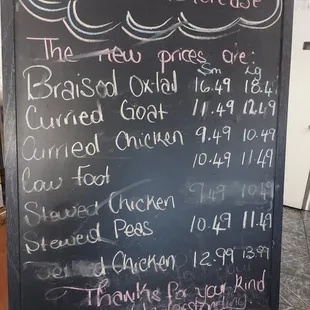 increase
The new prices are:
Sm Lg
Braised Oxtail 16.49 18.4
Curried Goat 11.49 12.49
Curried Chicken 9.49 10.49
Cow foot 10.49 11.49
Stewed Chicken 9.49 10.49
Stewed Peas 10.49 11.49
Chicken 12.99 13.99
Thanks for your kind
understanding